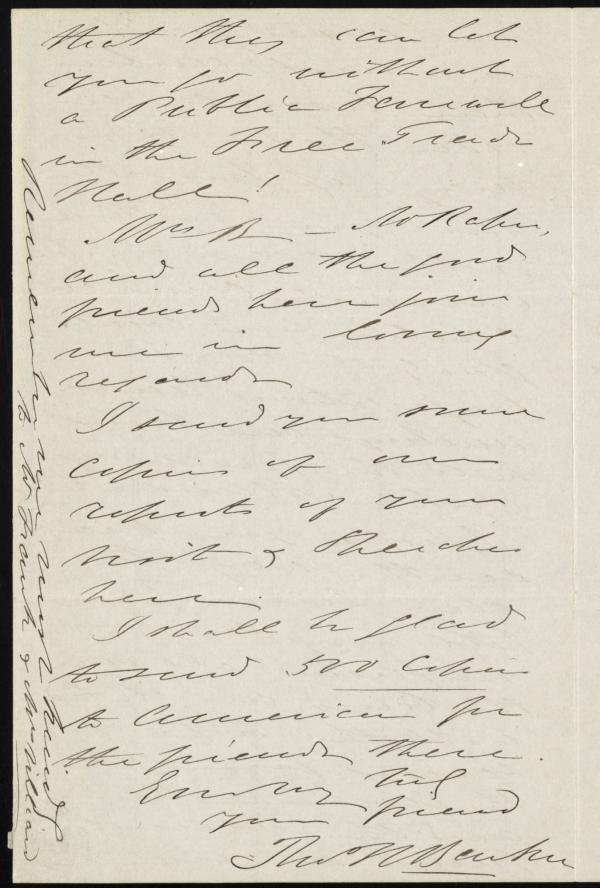 that they can let
you go without
a Public Farewell
in the Free Trade
Hall!
Mrs B — Mr Raper,
and all the good
friends here join
me in loving
regards
I send you some
copies of our
reports of your
visit & Speeches
here.
I shall be glad
to send 500 Copies
to America for
the friends there.
Ever my
your friend
Thos H Barker
Remember me most kindly
to Mr Frank & Mr William